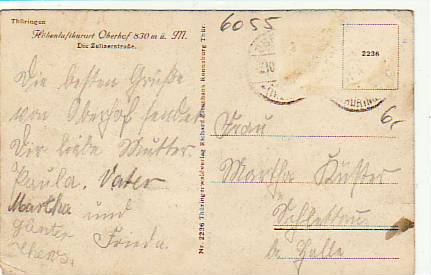 Thüringen
Höhenluftkurort Oberhof 830 m ü. M.
Die Zellaerstraße.
6055
2236
Die besten Grüße
von Oberhof sendet
Dir liebe Mutter.
Paula. Vater
Martha und
Günter Frieda
Nr. 2236 Thüringerwaldverlag Richard Zieschank Ronneburg Thür.
Frau
Martha Küster
Schlettau
b. Halle
6,-